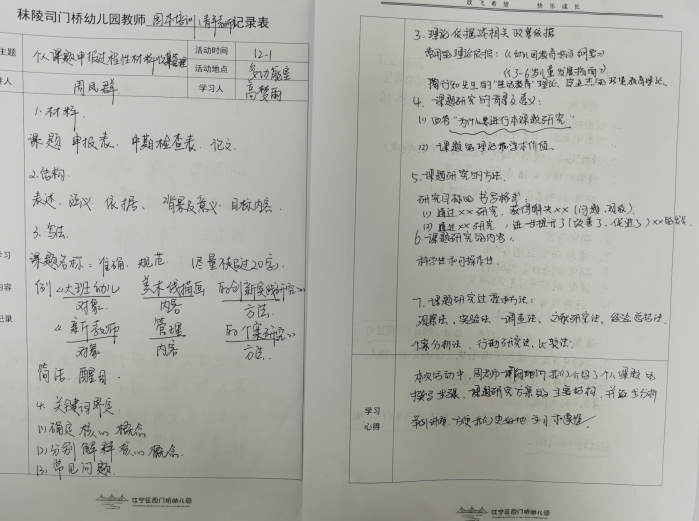 秣陵司门桥幼儿园教师 园本培训 记录表
主题
个人课题申报过程性材料收集整理
活动时间
12-1
活动地点
讲人
周凤群
学习人
高梦雨
1.材料.
课题申报表、中期检查表、论文.
2.结构.
表述、涵义、依据、背景及意义、目标内容.
3.写法.
学习
内容
记录
课题名称：准确、规范 (尽量不超过20字).
例《大班幼儿 美术线描画 的创新实践研究》
对象 内容 方法.
《新教师 管理 的个案研究》
对象 内容 方法.
简洁、醒目.
4.关键词界定.
(1)确定核心概念
(2)分别解释核心概念.
(3)常见问题.
江宁区司门桥幼儿园
放飞希望 快乐成长
3.理论依据或相关政策依据
常用的理论依据:《幼儿园教育指导纲要》
《3-6岁儿童发展指南》
陶行知先生的"生活教育"理论、
4.课题研究的背景及意义:
(1)回答"为什么要进行本课题研究"
(2)课题的理论和学术价值.
5.课题研究的方法.
研究目标的书写格式:
(1)通过××研究,获得解决××(问题、对策).
(2)通过××研究,进一步提升了(改善了、促进了)××的
6.课题研究的内容.
科学性和可操作性.
7.课题研究过程和方法:
观察法、实验法、调查法、文献研究法、经验总结法.
个案分析法、行动研究法、比较法.
学习
心得
本次活动中,周老师 向我们介绍了个人课题的
撰写步骤、课题研究方案的主要结构,并
案例讲解,方便我们更好地学习和掌握.
江宁区司门桥幼儿园